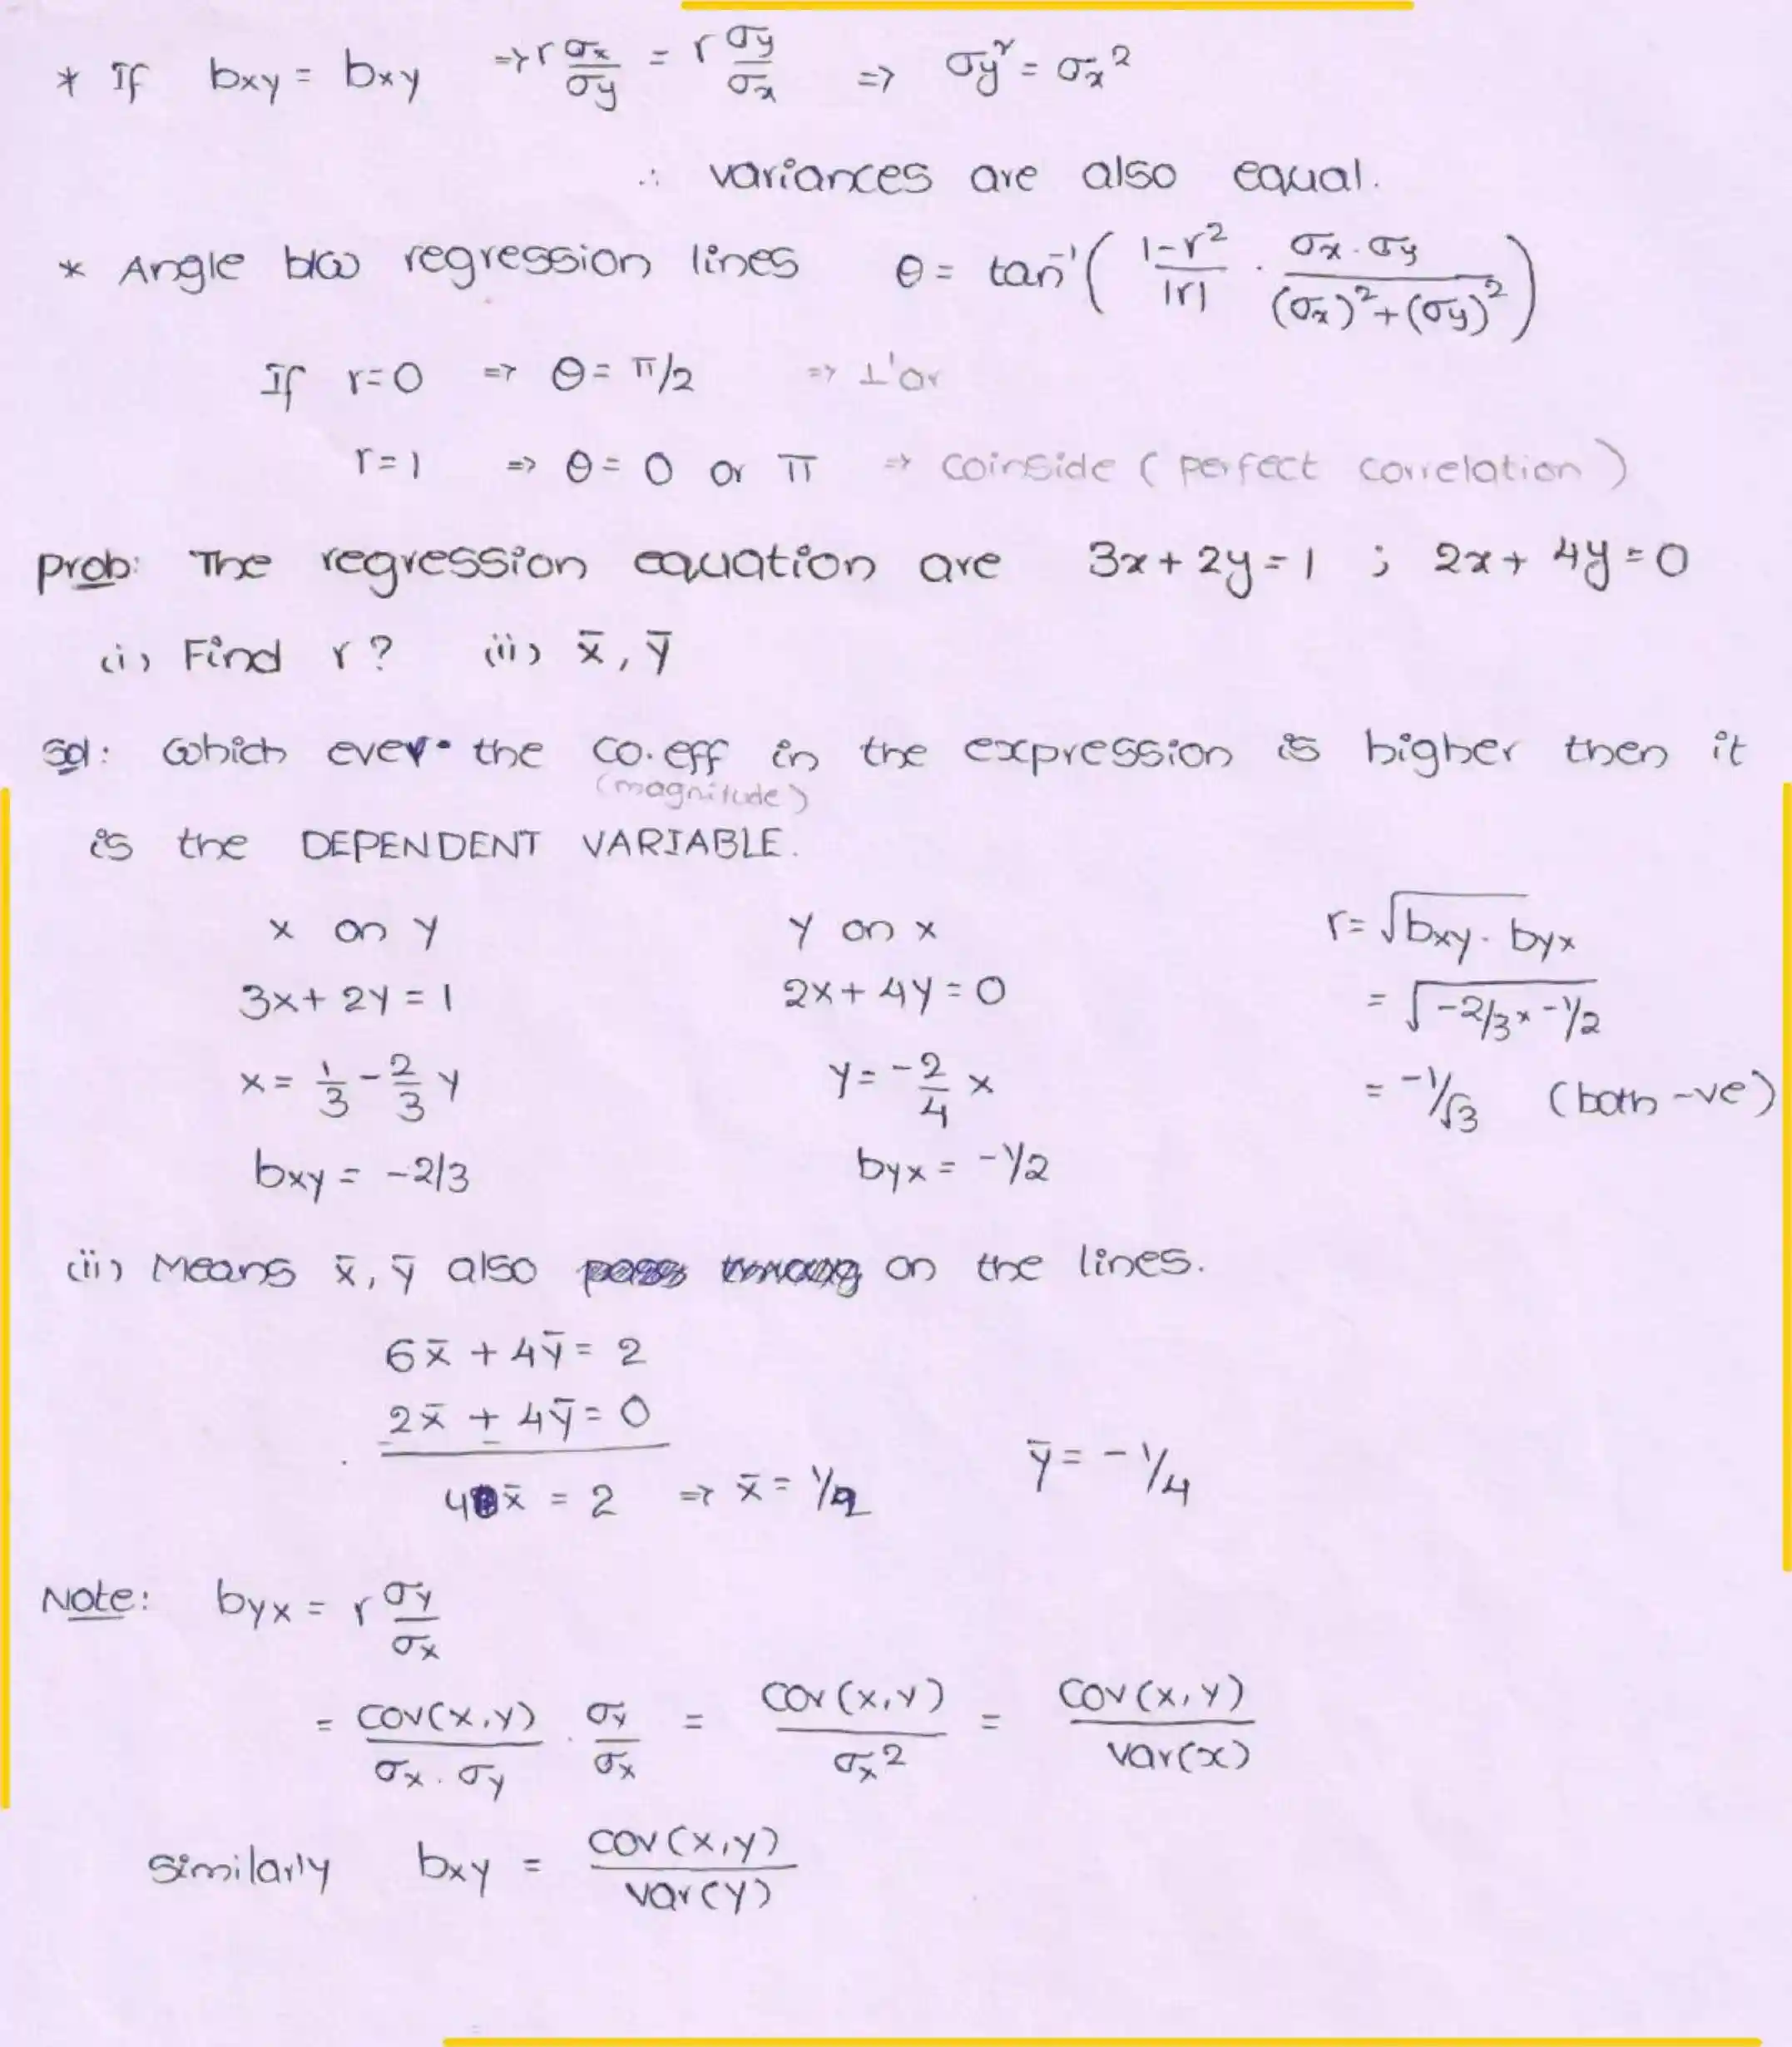 * If bxy = bxy ⇒ r σx/σy = r σy/σx ⇒ σy² = σx²
∴ variances are also equal.
* Angle b/w regression lines θ = tan⁻¹( (1-r²)/|r| · σx·σy/((σx)²+(σy)²) )
If r=0 ⇒ θ = π/2 ⇒ ⊥'or
r=1 ⇒ θ = 0 or π ⇒ coinside (perfect correlation)
Prob: The regression equation are 3x + 2y = 1 ; 2x + 4y = 0
(i) Find r? (ii) x̄, ȳ
Sol: Which ever the co.eff in the expression is higher then it
(magnitude)
is the DEPENDENT VARIABLE.
x on y y on x r = √(bxy · byx)
3x + 2y = 1 2x + 4y = 0 = √(-2/3 × -1/2)
x = 1/3 - 2/3 y y = -2/4 x = -1/√3 (both -ve)
bxy = -2/3 byx = -1/2
(ii) Means x̄, ȳ also on the lines.
6x̄ + 4ȳ = 2
2x̄ + 4ȳ = 0
4x̄ = 2 ⇒ x̄ = 1/2 ȳ = -1/4
Note: byx = r σy/σx
= cov(x,y)/(σx·σy) · σy/σx = cov(x,y)/σx² = cov(x,y)/var(x)
Similarly bxy = cov(x,y)/var(y)